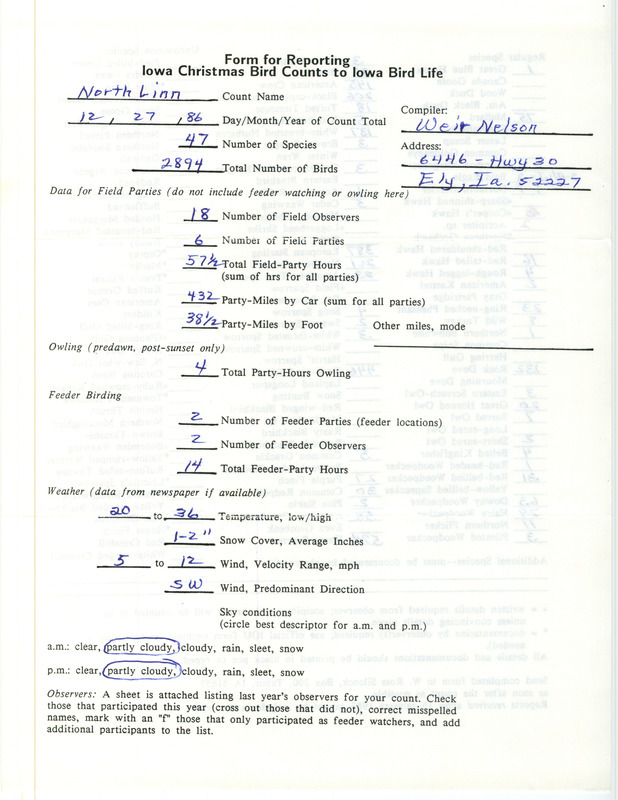 Form for Reporting
Iowa Christmas Bird Counts to Iowa Bird Life
North Linn Count Name
12, 27, 86 Day/Month/Year of Count Total
Compiler:
Weir Nelson
47 Number of Species
Address:
6446 - Hwy 30
2894 Total Number of Birds
Ely, Ia. 52227
Data for Field Parties (do not include feeder watching or owling here)
18 Number of Field Observers
6 Number of Field Parties
57½ Total Field-Party Hours
(sum of hrs for all parties)
432 Party-Miles by Car (sum for all parties)
38½ Party-Miles by Foot Other miles, mode
Owling (predawn, post-sunset only)
4 Total Party-Hours Owling
Feeder Birding
2 Number of Feeder Parties (feeder locations)
2 Number of Feeder Observers
14 Total Feeder-Party Hours
Weather (data from newspaper if available)
20 to 36 Temperature, low/high
1-2" Snow Cover, Average Inches
5 to 12 Wind, Velocity Range, mph
SW Wind, Predominant Direction
Sky conditions
(circle best descriptor for a.m. and p.m.)
a.m.: clear, partly cloudy, cloudy, rain, sleet, snow
p.m.: clear, partly cloudy, cloudy, rain, sleet, snow
Observers: A sheet is attached listing last year's observers for your count. Check
those that participated this year (cross out those that did not), correct misspelled
names, mark with an "f" those that only participated as feeder watchers, and add
additional participants to the list.